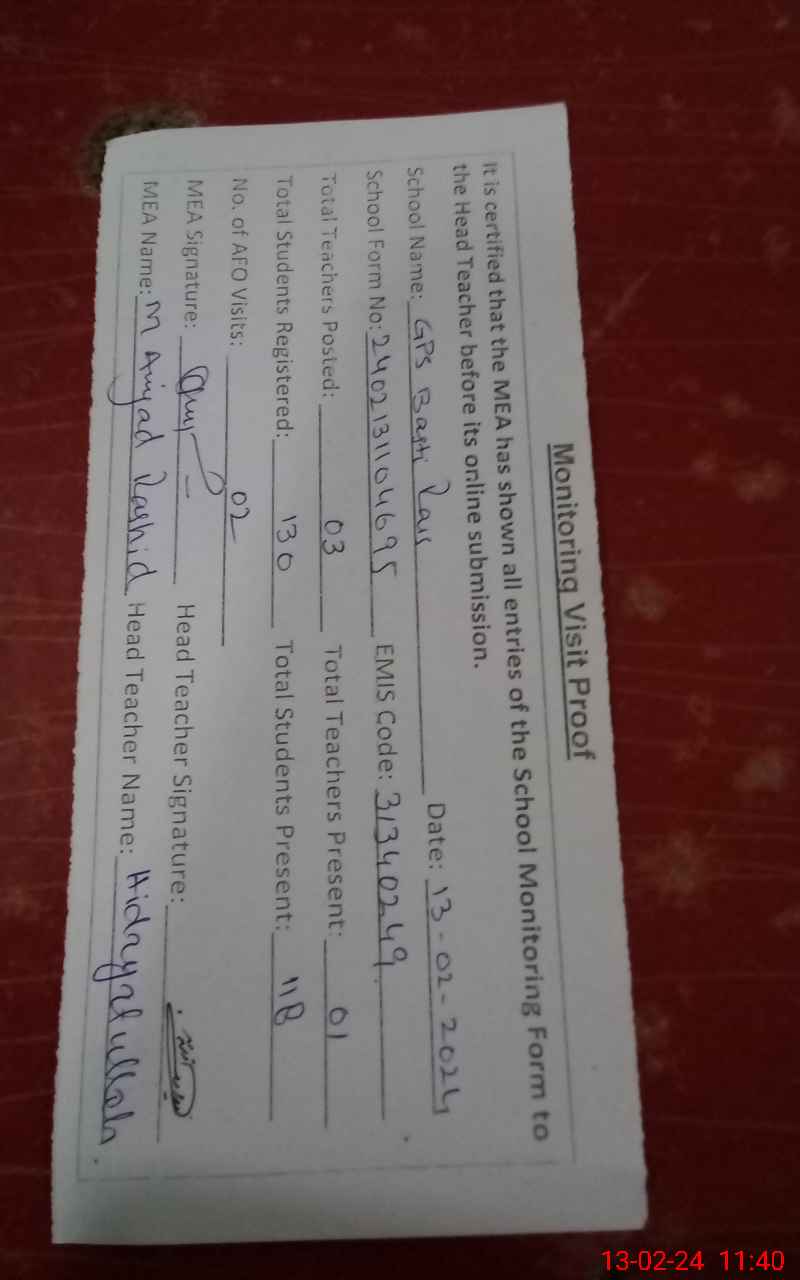 Monitoring Visit Proof
It is certified that the MEA has shown all entries of the School Monitoring Form to
the Head Teacher before its online submission.
School Name: GPS Basti Rais Date: 13-02-2024
School Form No: 2402131104695 EMIS Code: 31340249
Total Teachers Posted: 03 Total Teachers Present: 01
Total Students Registered: 130 Total Students Present: 118
No. of AEO Visits: 02
MEA Signature: Head Teacher Signature:
MEA Name: M Amjad Rashid Head Teacher Name: Hidayatullah
13-02-24 11:40